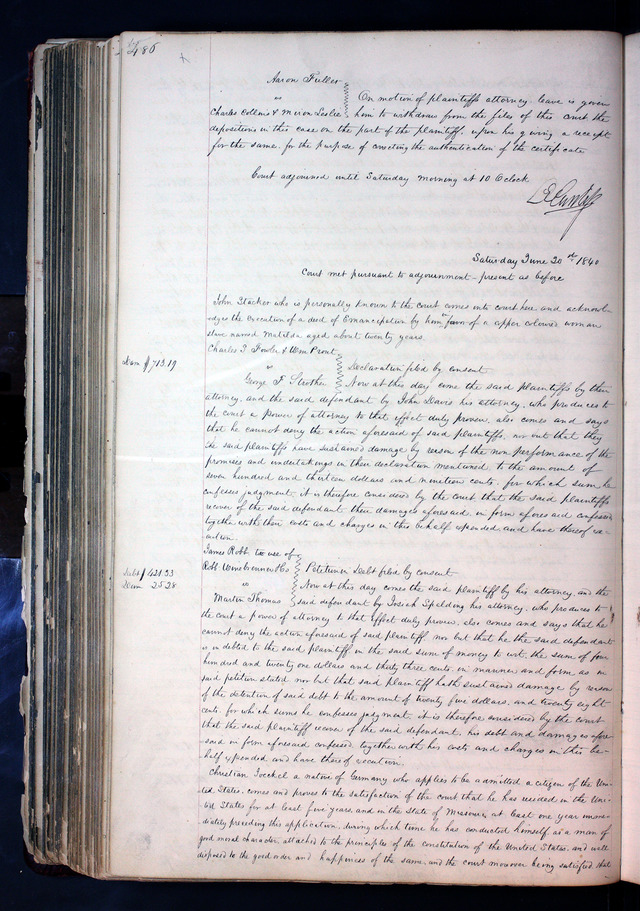 486
Aaron Fuller
vs
Charles Collins & Miron Leslie
On motion of plaintiffs attorney leave is given
him to withdraw from the files of this court the
depositions in this case on the part of the plaintiff, upon his giving a receipt
for the same, for the purpose of correcting the authentication of the certificate
Court adjourned until Saturday morning at 10 Oclock
Saturday June 20th 1840
Court met pursuant to adjournment - present as before
John Stacker who is personally known to the court comes into court here, and acknowl-
edges the execution of a deed of Emancipation by him in favor of a copper colored woman
slave named Matilda aged about twenty years.
Charles F Fowler & Wm Prout
Dam $713.19
vs
George F Strother
Declaration filed by consent
Now at this day come the said plaintiffs by their
attorney, and the said defendant by John Davis his attorney, who produces to
the court a power of attorney to that effect duly proven, also comes and says
that he cannot deny the action aforesaid of said plaintiffs, nor but that they
the said plaintiffs have sustained damage by reason of the non performance of the
promises and undertakings in their declaration mentioned to the amount of
seven hundred and thirteen dollars and nineteen cents, for which sum he
confesses judgment, it is therefore considered by the court that the said plaintiffs
recover of the said defendant their damages aforesaid in form aforesaid confessed
together with their costs and charges in this behalf expended, and have thereof ex-
ecution.
James Robb to use of
Debt $421.33
Dam 25.28
vs
Martin Thomas
Petition in Debt filed by consent
Now at this day comes the said plaintiff by his attorney, and the
said defendant by Josiah Spalding his attorney, who produces to
the court a power of attorney to that effect duly proven, also comes and says that he
cannot deny the action aforesaid of said plaintiff nor but that he the said defendant
is indebted to the said plaintiff in the said sum of money to wit, the sum of four
hundred and twenty one dollars and thirty three cents, in manner and form as in
said petition stated nor but that said plaintiff hath sustained damage by reason
of the detention of said debt to the amount of twenty five dollars, and twenty eight
cents, for which sums he confesses judgment, it is therefore considered by the court
that the said plaintiff recover of the said defendant, his debt and damages afore-
said in form aforesaid confessed, together with his costs and charges in this be-
half expended, and have thereof execution.
Christian Joeckel a native of Germany who applies to be admitted a citizen of the Uni-
ted States, comes and proves to the satisfaction of the court that he has resided in the Uni-
ted States for at least five years, and in the State of Missouri at least one year imme-
diately preceding this application, during which time he has conducted himself as a man of
good moral character, attached to the principles of the constitution of the United States, and well
disposed to the good order and happiness of the same, and the court moreover being satisfied that